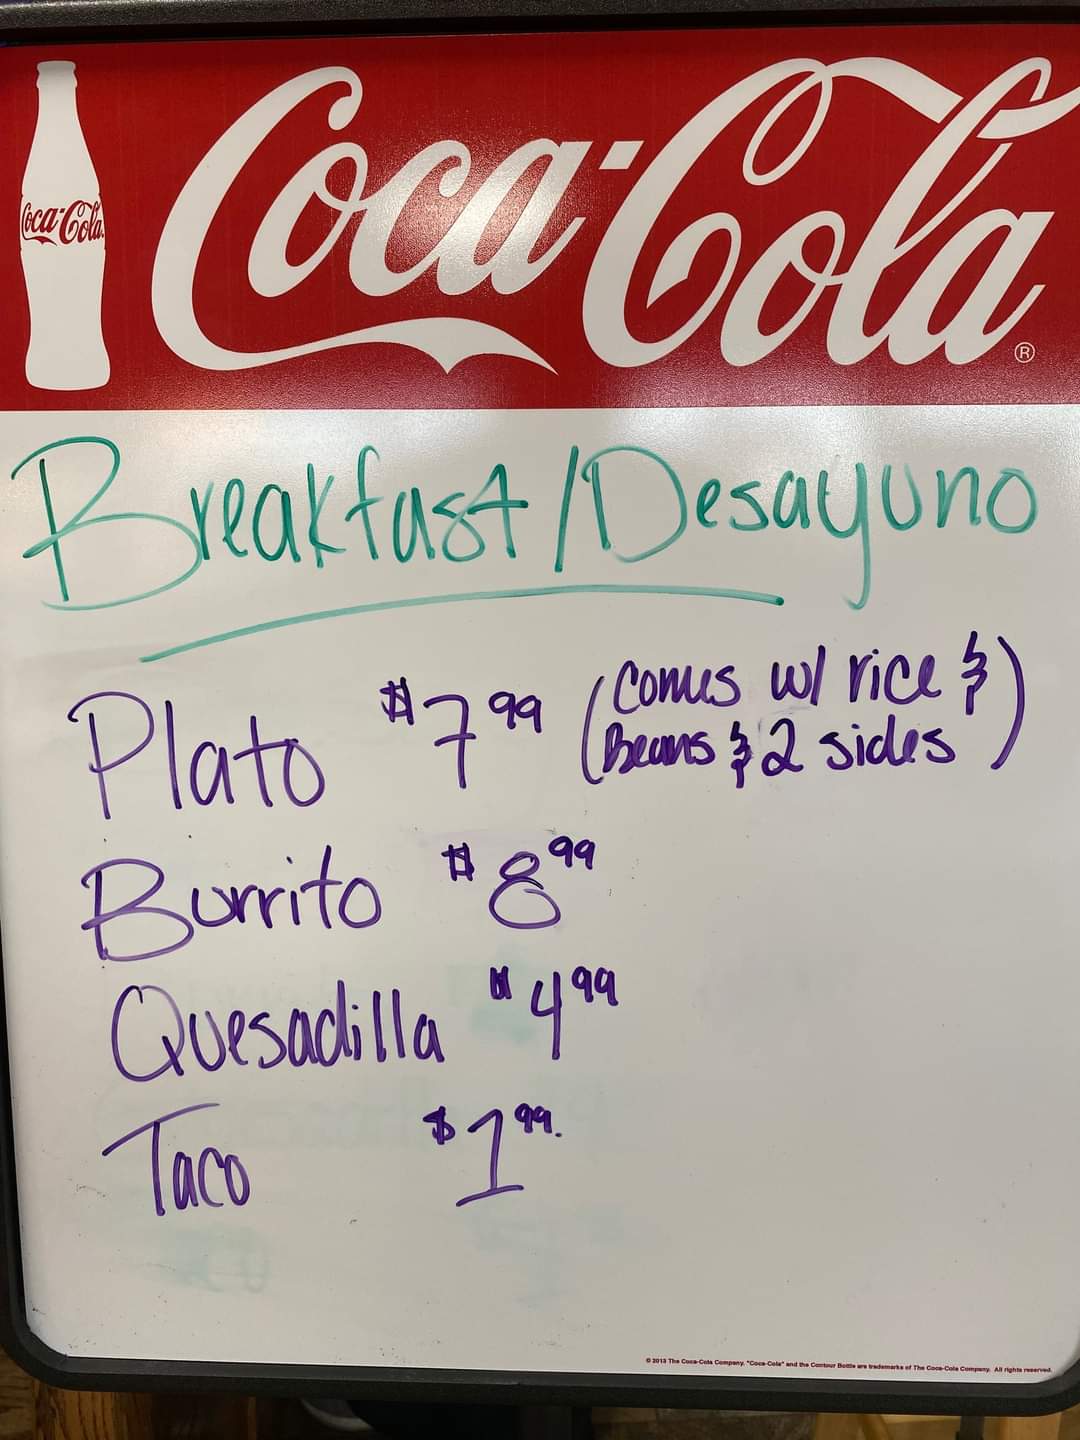 Coca-Cola
Coca-Cola®
Breakfast/Desayuno
Plato $7.99 (Comes w/ rice & Beans & 2 sides)
Burrito $8.99
Quesadilla $4.99
Taco $1.99.
© 2013 The Coca-Cola Company. "Coca-Cola" and the Contour Bottle are trademarks of The Coca-Cola Company. All rights reserved.